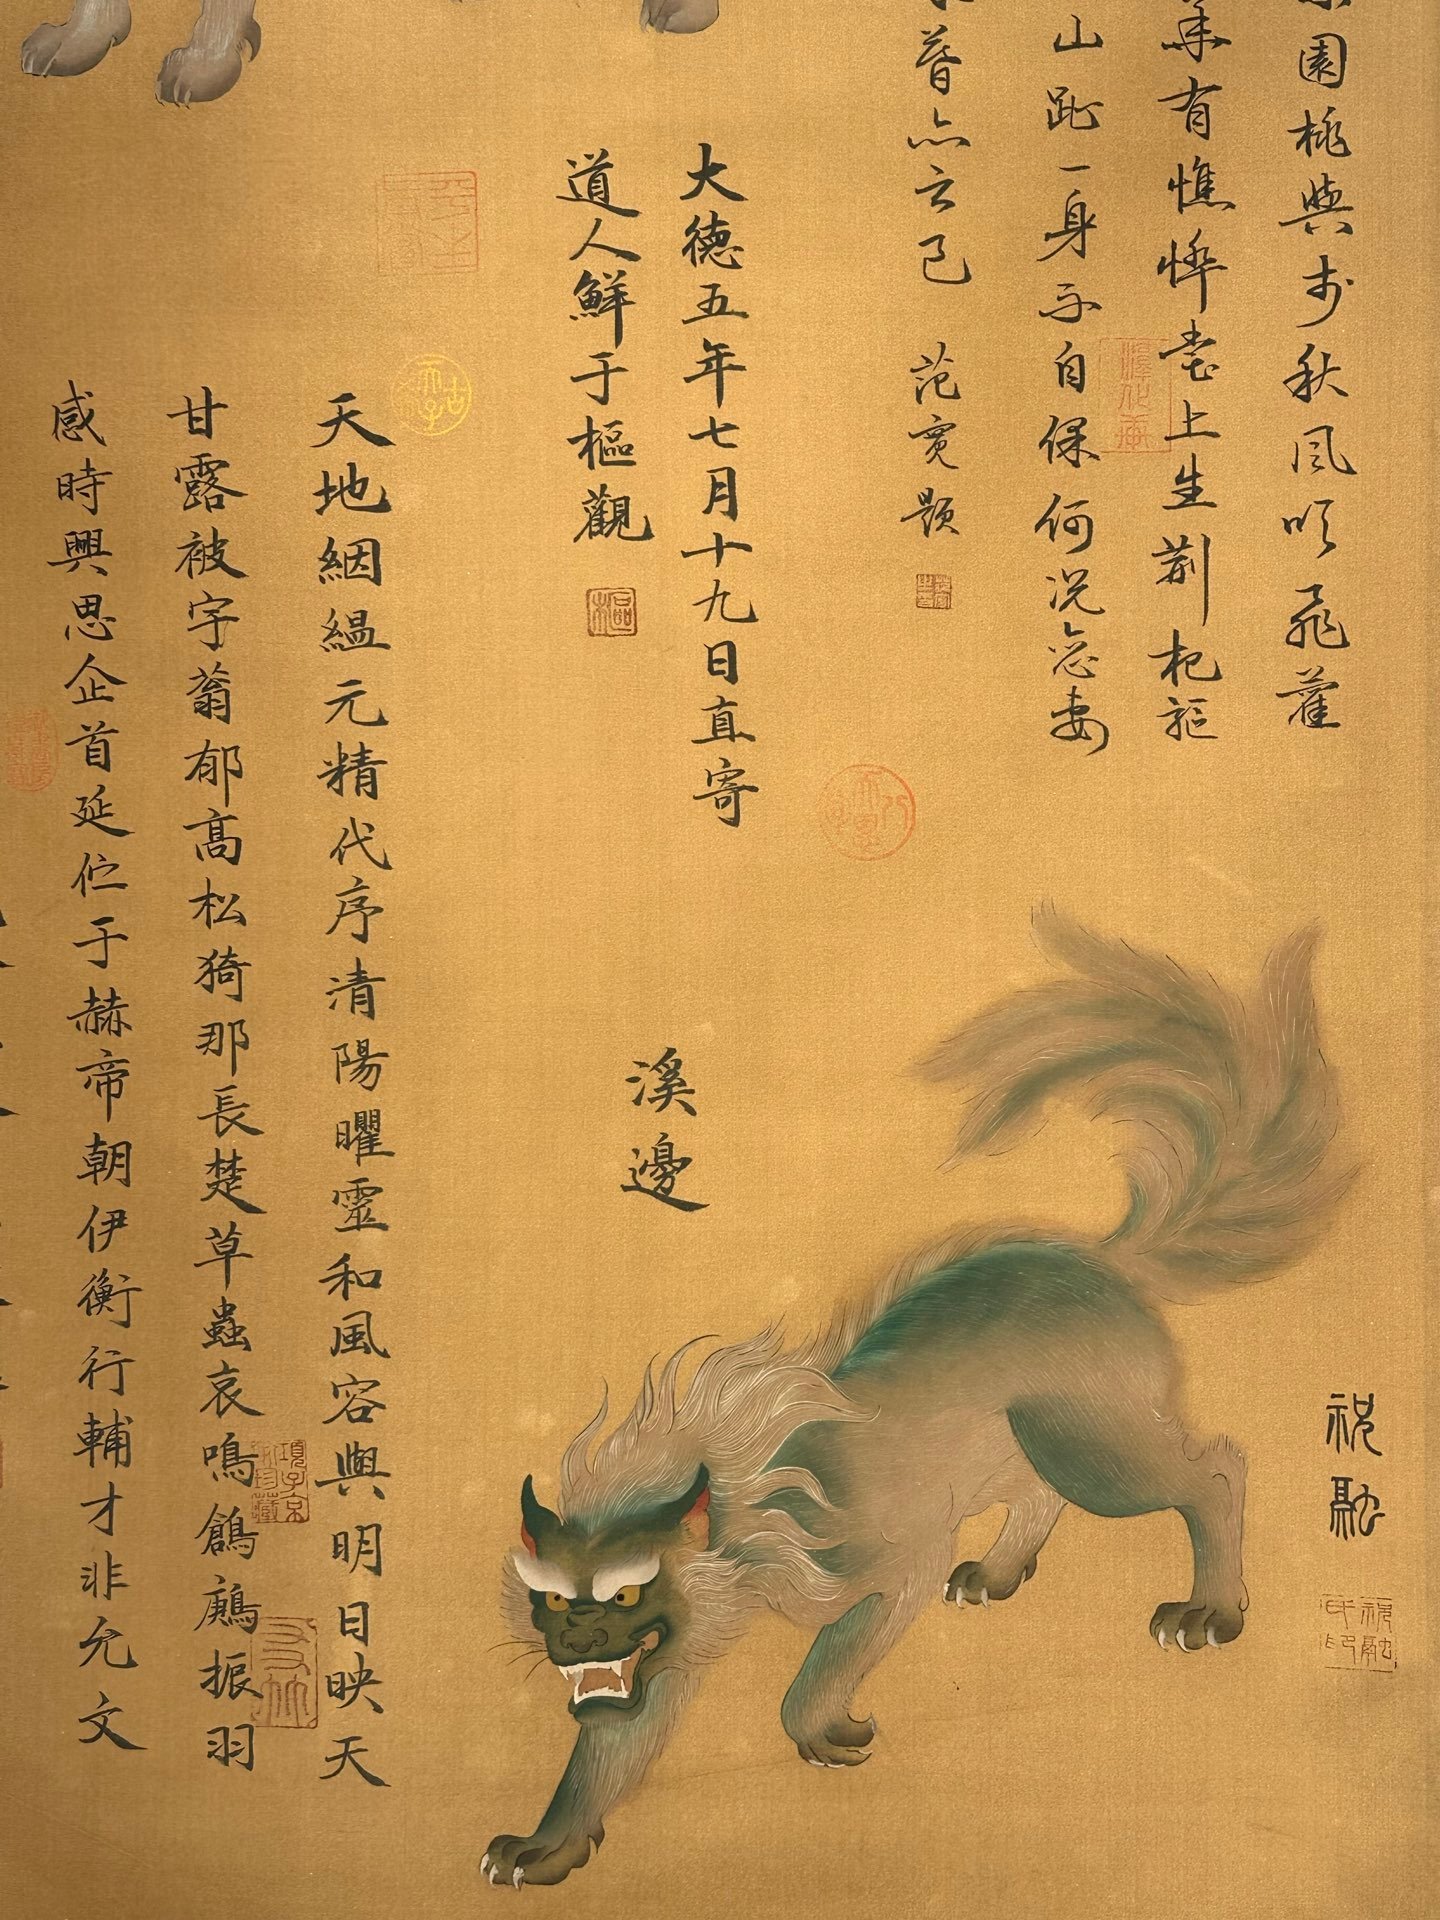 園桃與李秋風吹飛藿
有憔悴堂上生荆杞驅
山趾一身不自保何況戀妻
暮亦云已 范寛題
大德五年七月十九日直寄
道人鮮于樞觀
天地絪緼元精代序清陽曜靈和風容與明日映天
甘露被宇蓊郁高松猗那長楚草蟲哀鳴鶬鶊振羽
感時興思企首延佇于赫帝朝伊衡行輔才非允文
溪邊
祝融
祝融
項子京
珍藏